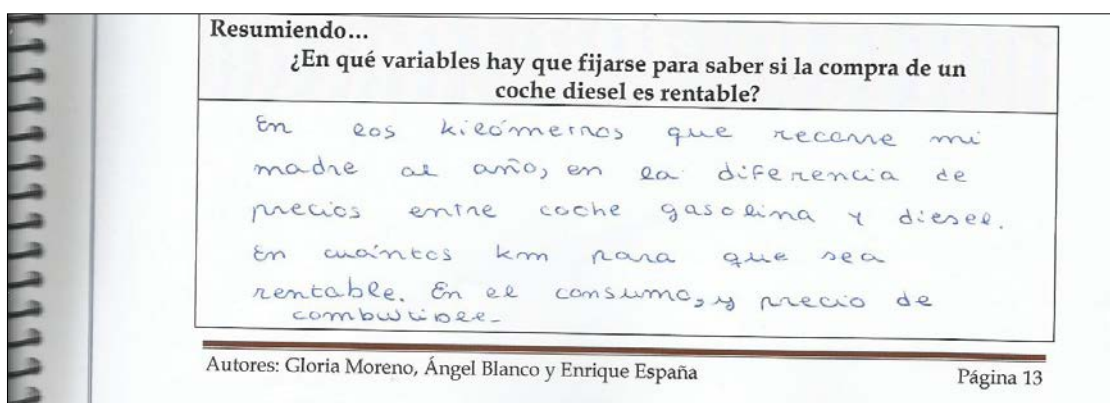 Resumiendo...
¿En qué variables hay que fijarse para saber si la compra de un
coche diesel es rentable?
En los kilómetros que recorre mi
madre al año, en la diferencia de
precios entre coche gasolina y diesel.
En cuántos km para que sea
rentable. En el consumo, y precio de
combustible.
Autores: Gloria Moreno, Ángel Blanco y Enrique España
Página 13